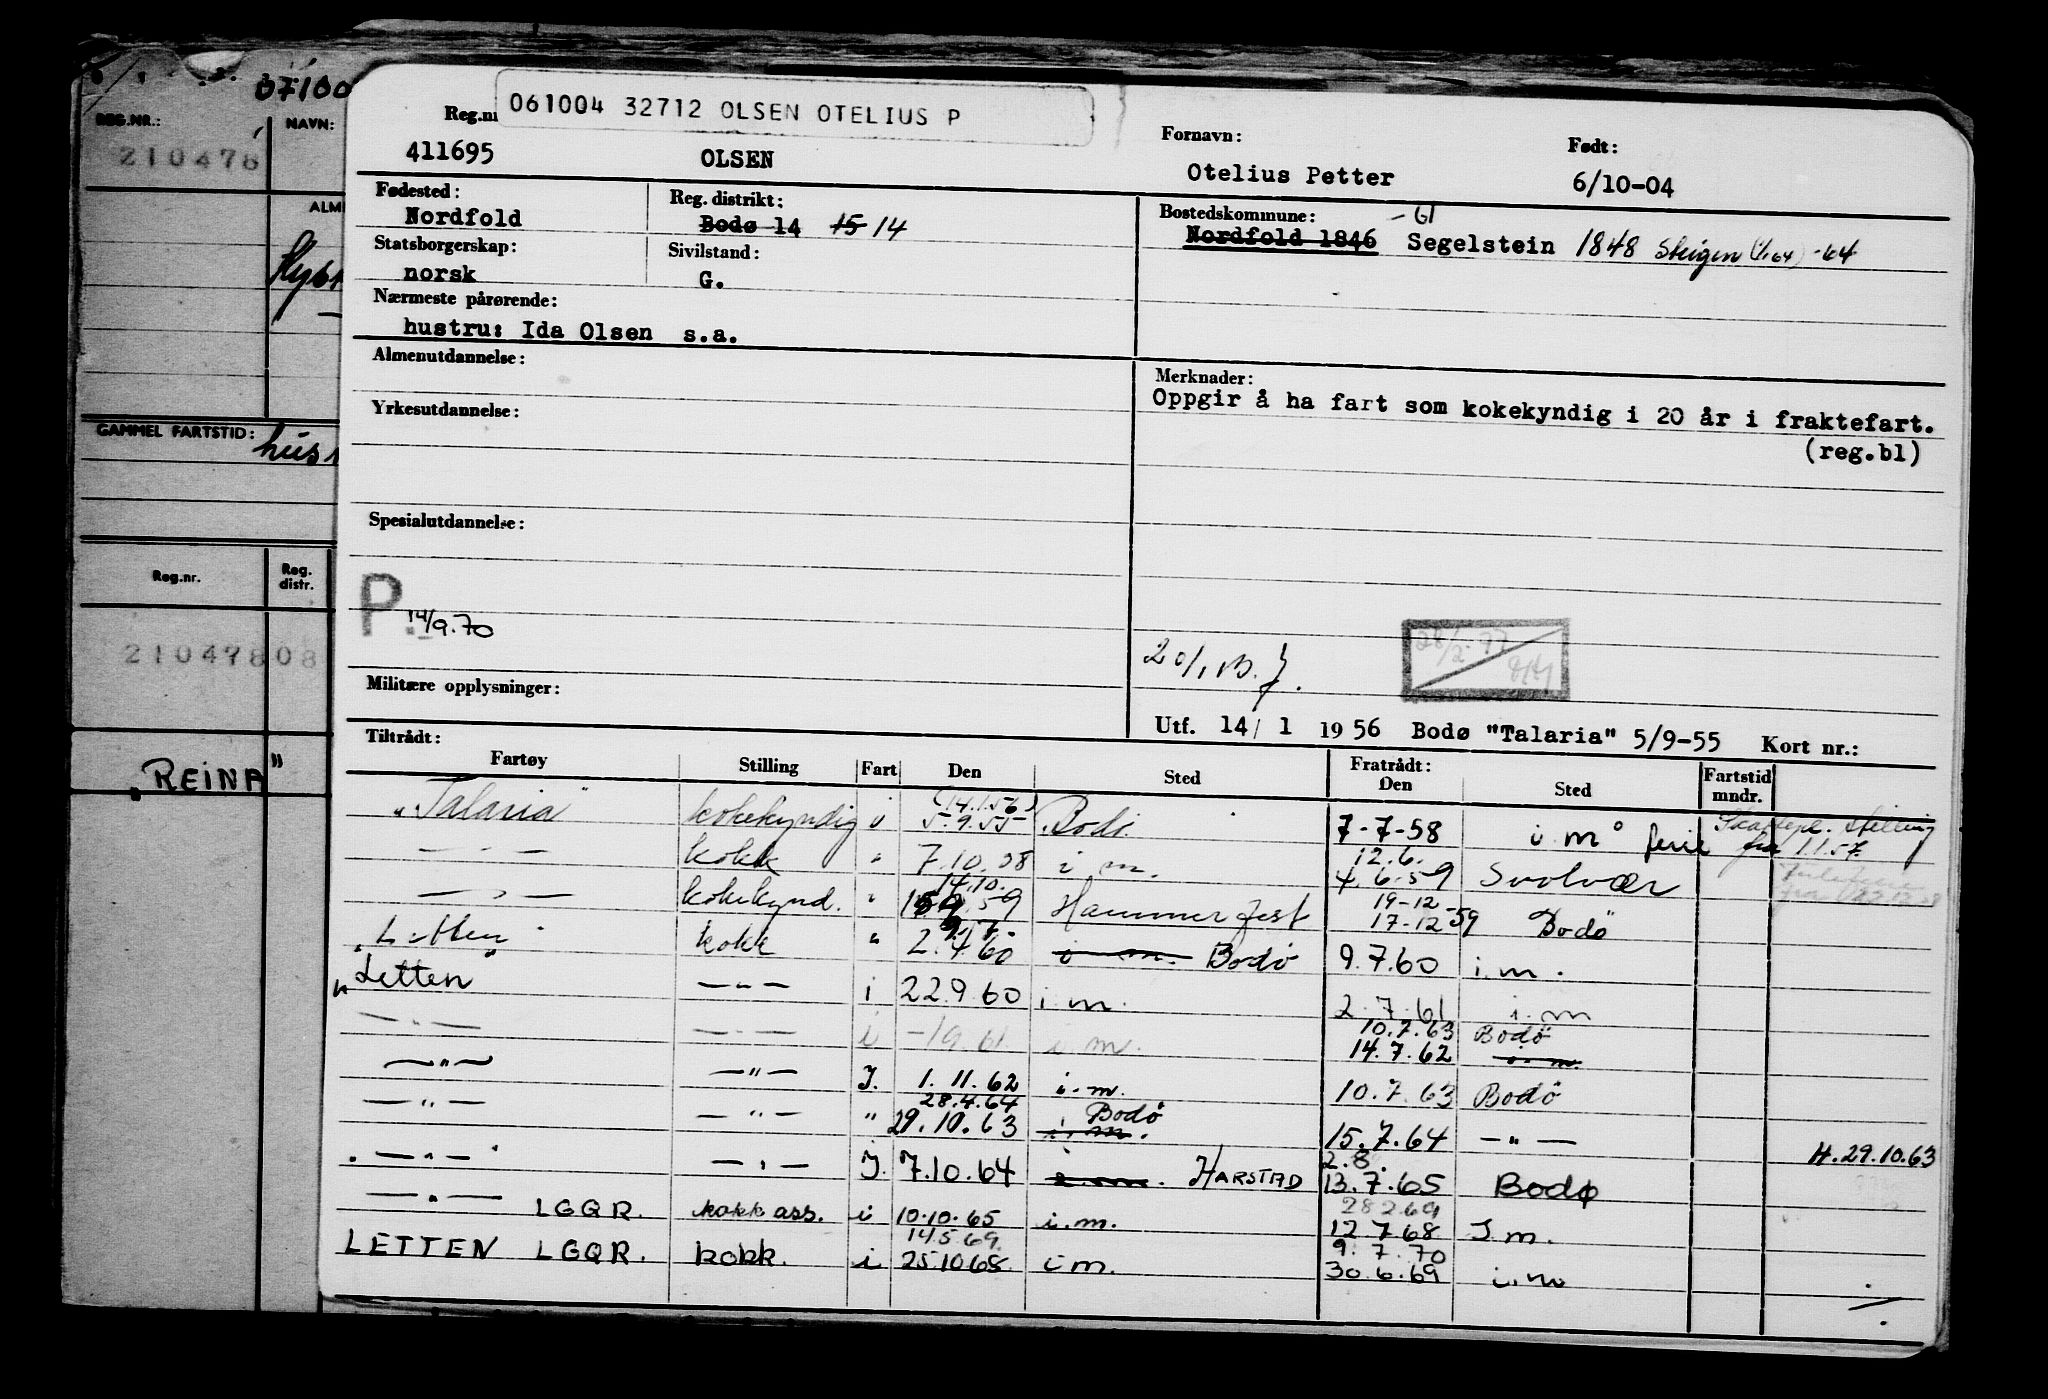 07100
REG.NR.:
NAVN:
210478
GAMMEL FARTSTID:
Reg.nr.
Reg. distr.
21047808
„REINA"
061004 32712 OLSEN OTELIUS P
Fornavn:
Født:
411695 OLSEN Otelius Petter 6/10-04
Fødested: Reg. distrikt: Bostedskommune: -61
Nordfold Bodø 14 15 14 Nordfold 1846 Segelstein 1848 Steigen (1/1 64) -64
Statsborgerskap: Sivilstand:
norsk G.
Nærmeste pårørende:
hustru: Ida Olsen s.a.
Almenutdannelse: Merknader:
Oppgir å ha fart som kokekyndig i 20 år i fraktefart.
(reg.bl)
Yrkesutdannelse:
Spesialutdannelse:
P. 14/9.70
Militære opplysninger:
Utf. 14/ 1 1956 Bodø "Talaria" 5/9-55 Kort nr.:
Tiltrådt: Fratrådt:
Fartøy Stilling Fart Den Sted Den Sted Fartstid mndr.
(14.1.56)
"Talaria" kokekyndig i 5.9.55 Bodø 7-7-58 i.m. ferie
fra 1.1.57.
— " — kokk " 7.10.58 i m. 12.6. 4.6.59 Svolvær
— " — kokekynd. " 14.10. 59 Hammerfest 19-12- 17-12-59 Bodø
"Letten" kokk " 2.4.60 i m. Bodø 9.7.60 i.m.
"Letten" — " — i 22.9.60 i.m. 2.7.61 i.m
— " — — " — i -19.61. i.m. 10.7.63 Bodø
14.7.62 i.m.
— " — — " — I. 1.11.62 i.m. 10.7.63 Bodø
28.4.64 Bodø
— " — — " — " 29.10.63 i.m. 15.7.64 — " — H.29.10.63
2.8.
— " — — " — I. 7.10.64 i.m. HARSTAD 13.7.65 Bodø
28269
— " — LGQR. kokk ass. i 10.10.65 i.m. 12.7.68 I m.
14.5.69 9.7.70
LETTEN LGQR. kokk. i 25.10.68 i m. 30.6.69 i.m